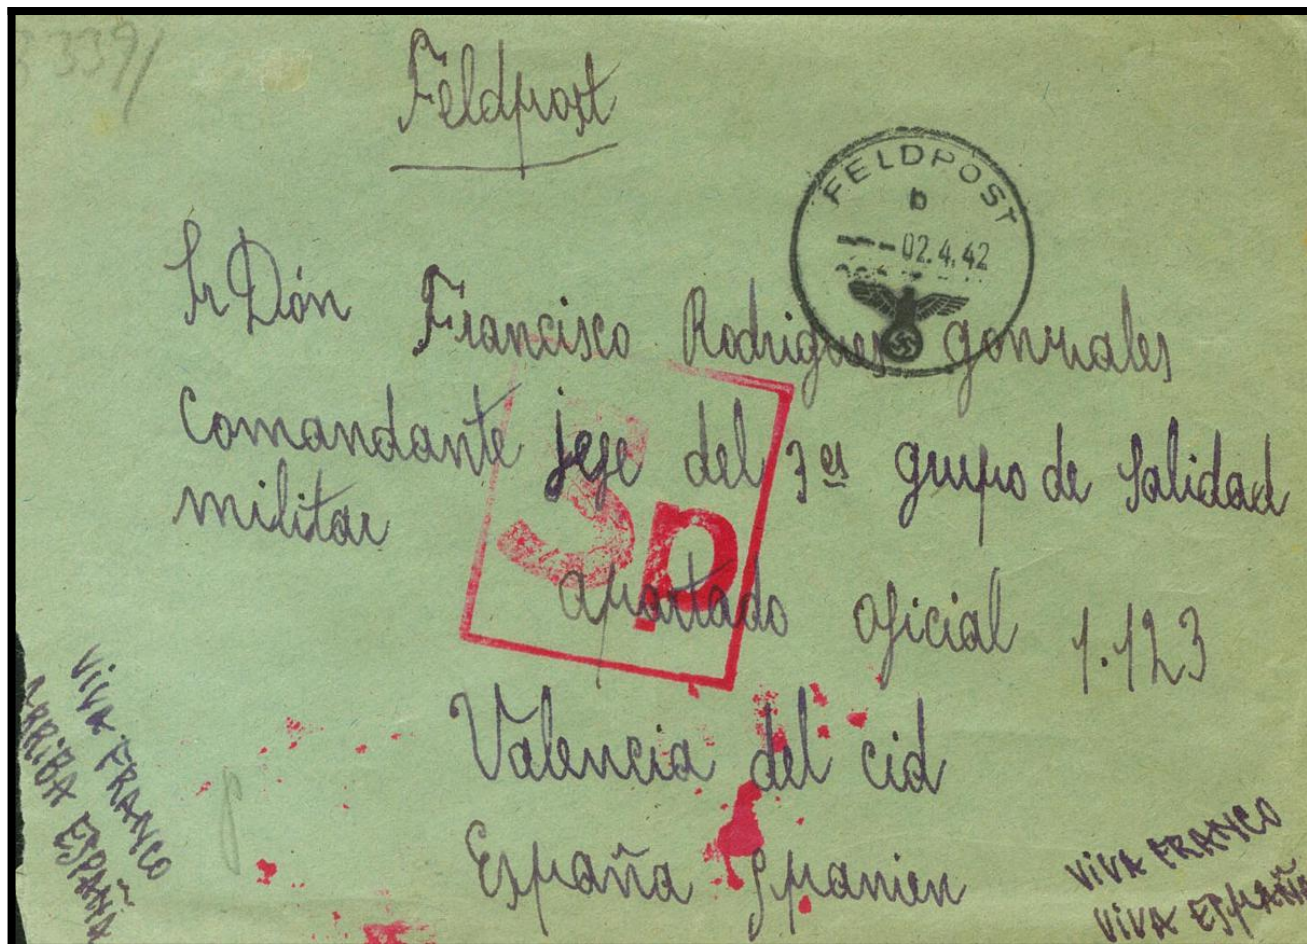 3391
Feldpost
FELDPOST
b
--02.4.42
Sr Dón Francisco Rodrigues gonzales
Comandante jefe del 3er grupo de Salidad
militar
Sp
apartado oficial 1.123
Valencia del cid
España Spanien
VIVA FRANCO
ARRIBA ESPAÑA
VIVA FRANCO
VIVA ESPAÑA